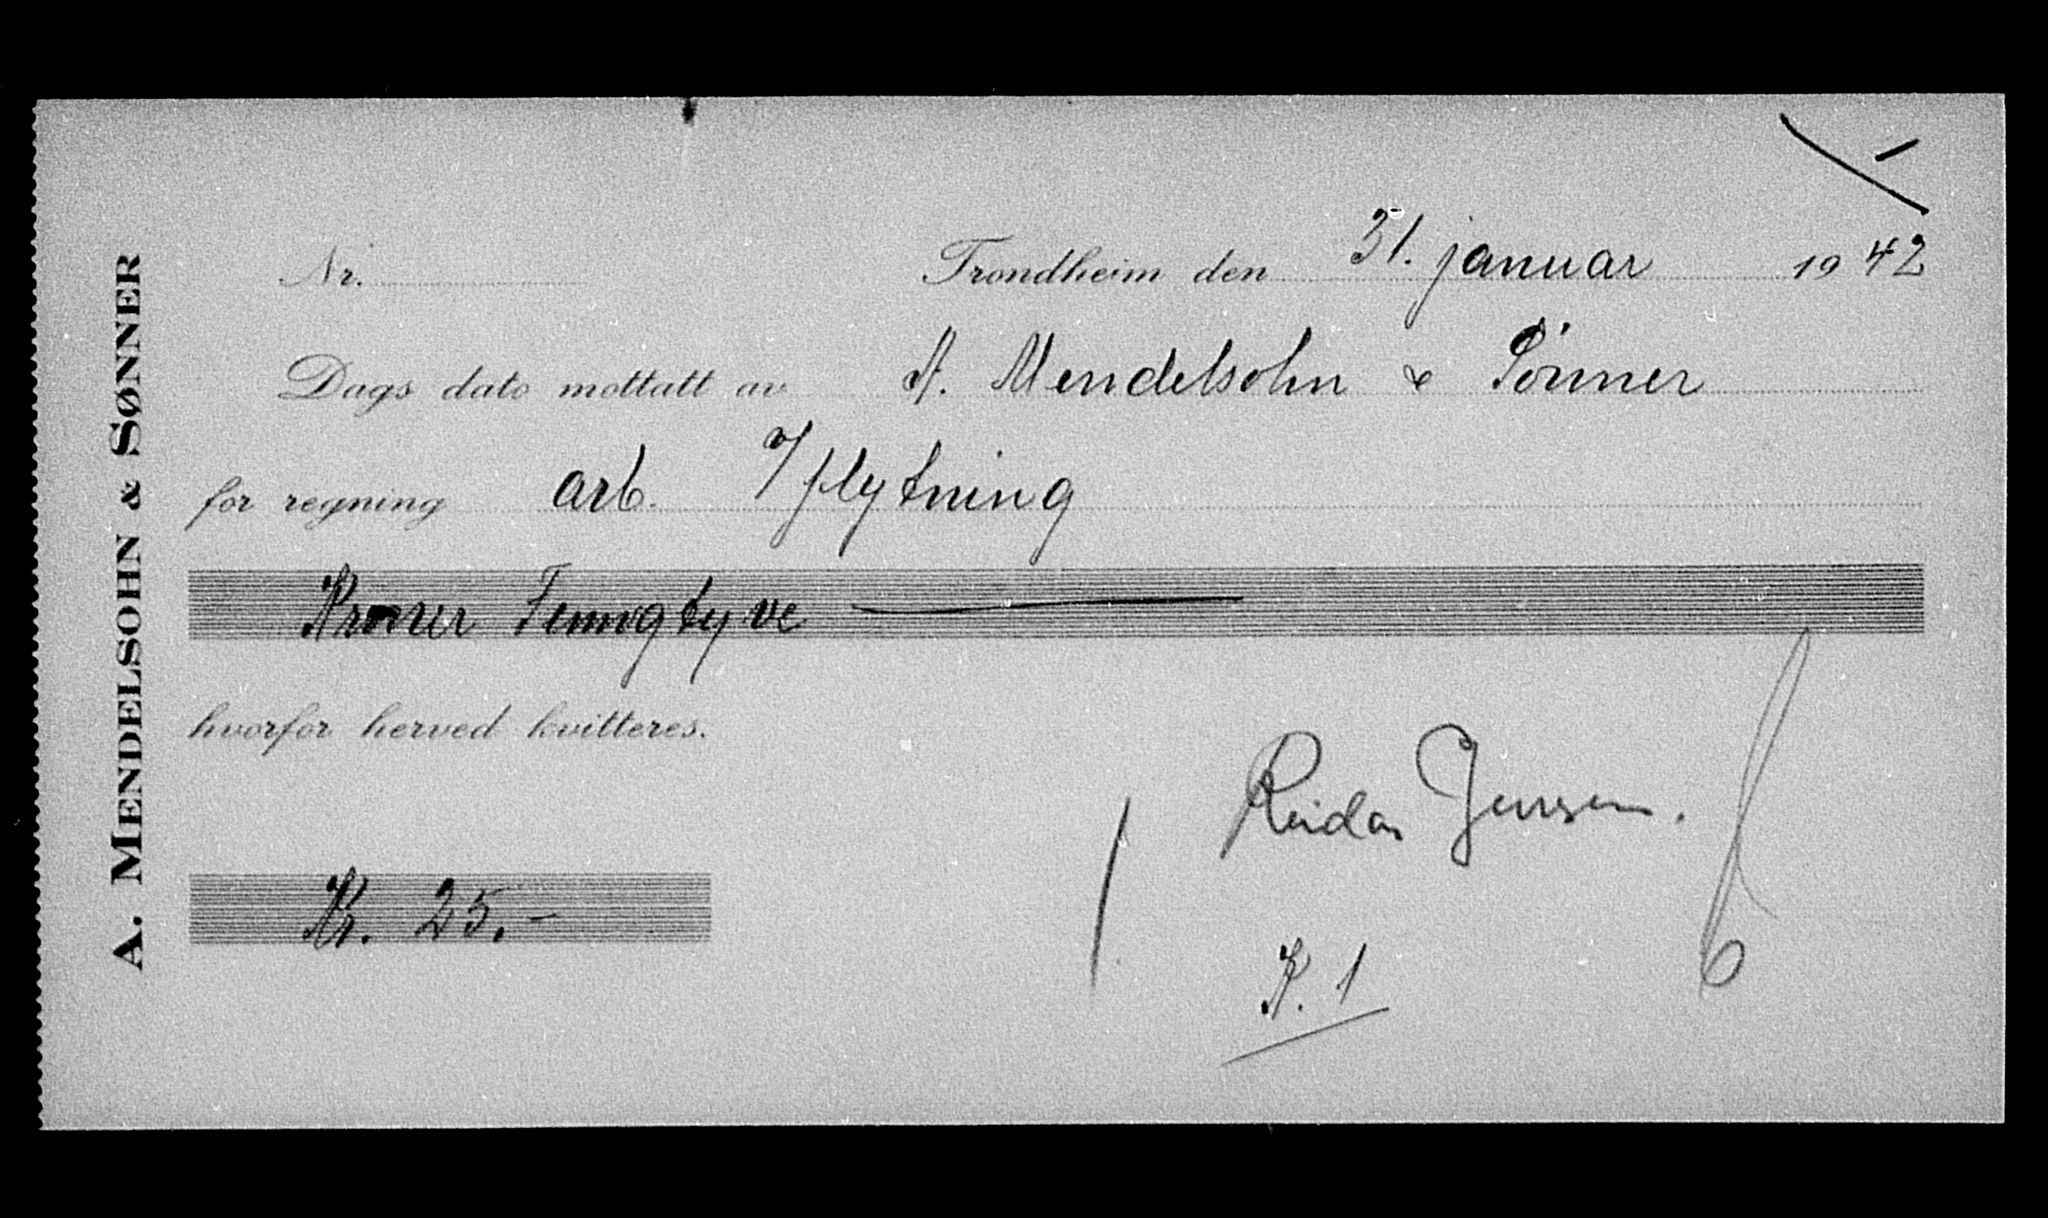 A. MENDELSOHN & SØNNER
Nr. Trondheim den 31. januar 1942
Dags dato mottatt av A. Mendelsohn & Sønner
for regning arb. v/flytning
Kroner Femogtyve
hvorfor herved kvitteres.
Reidar Jensen.
Kr. 25.-
K. 1